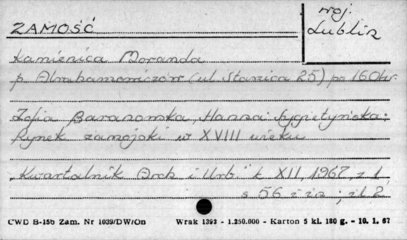 ZAMOŚĆ
woj.
Lublin
Kamienica Moranda
p. Abrahamowiczów (ul. Staszica 25) po 160
Zofia Baranowska, Hanna Sygietyńska:
Rynek zamojski w XVIII wieku
"Kwartalnik Arch. i Urb." t. XII, 1967, z. 1
s. 56 ; il. 2
CWD B-15b Zam. Nr 1039/DW/On Wrak 1393 - 1.250.000 - Karton 5 kl. 180 g. - 10. 1. 67